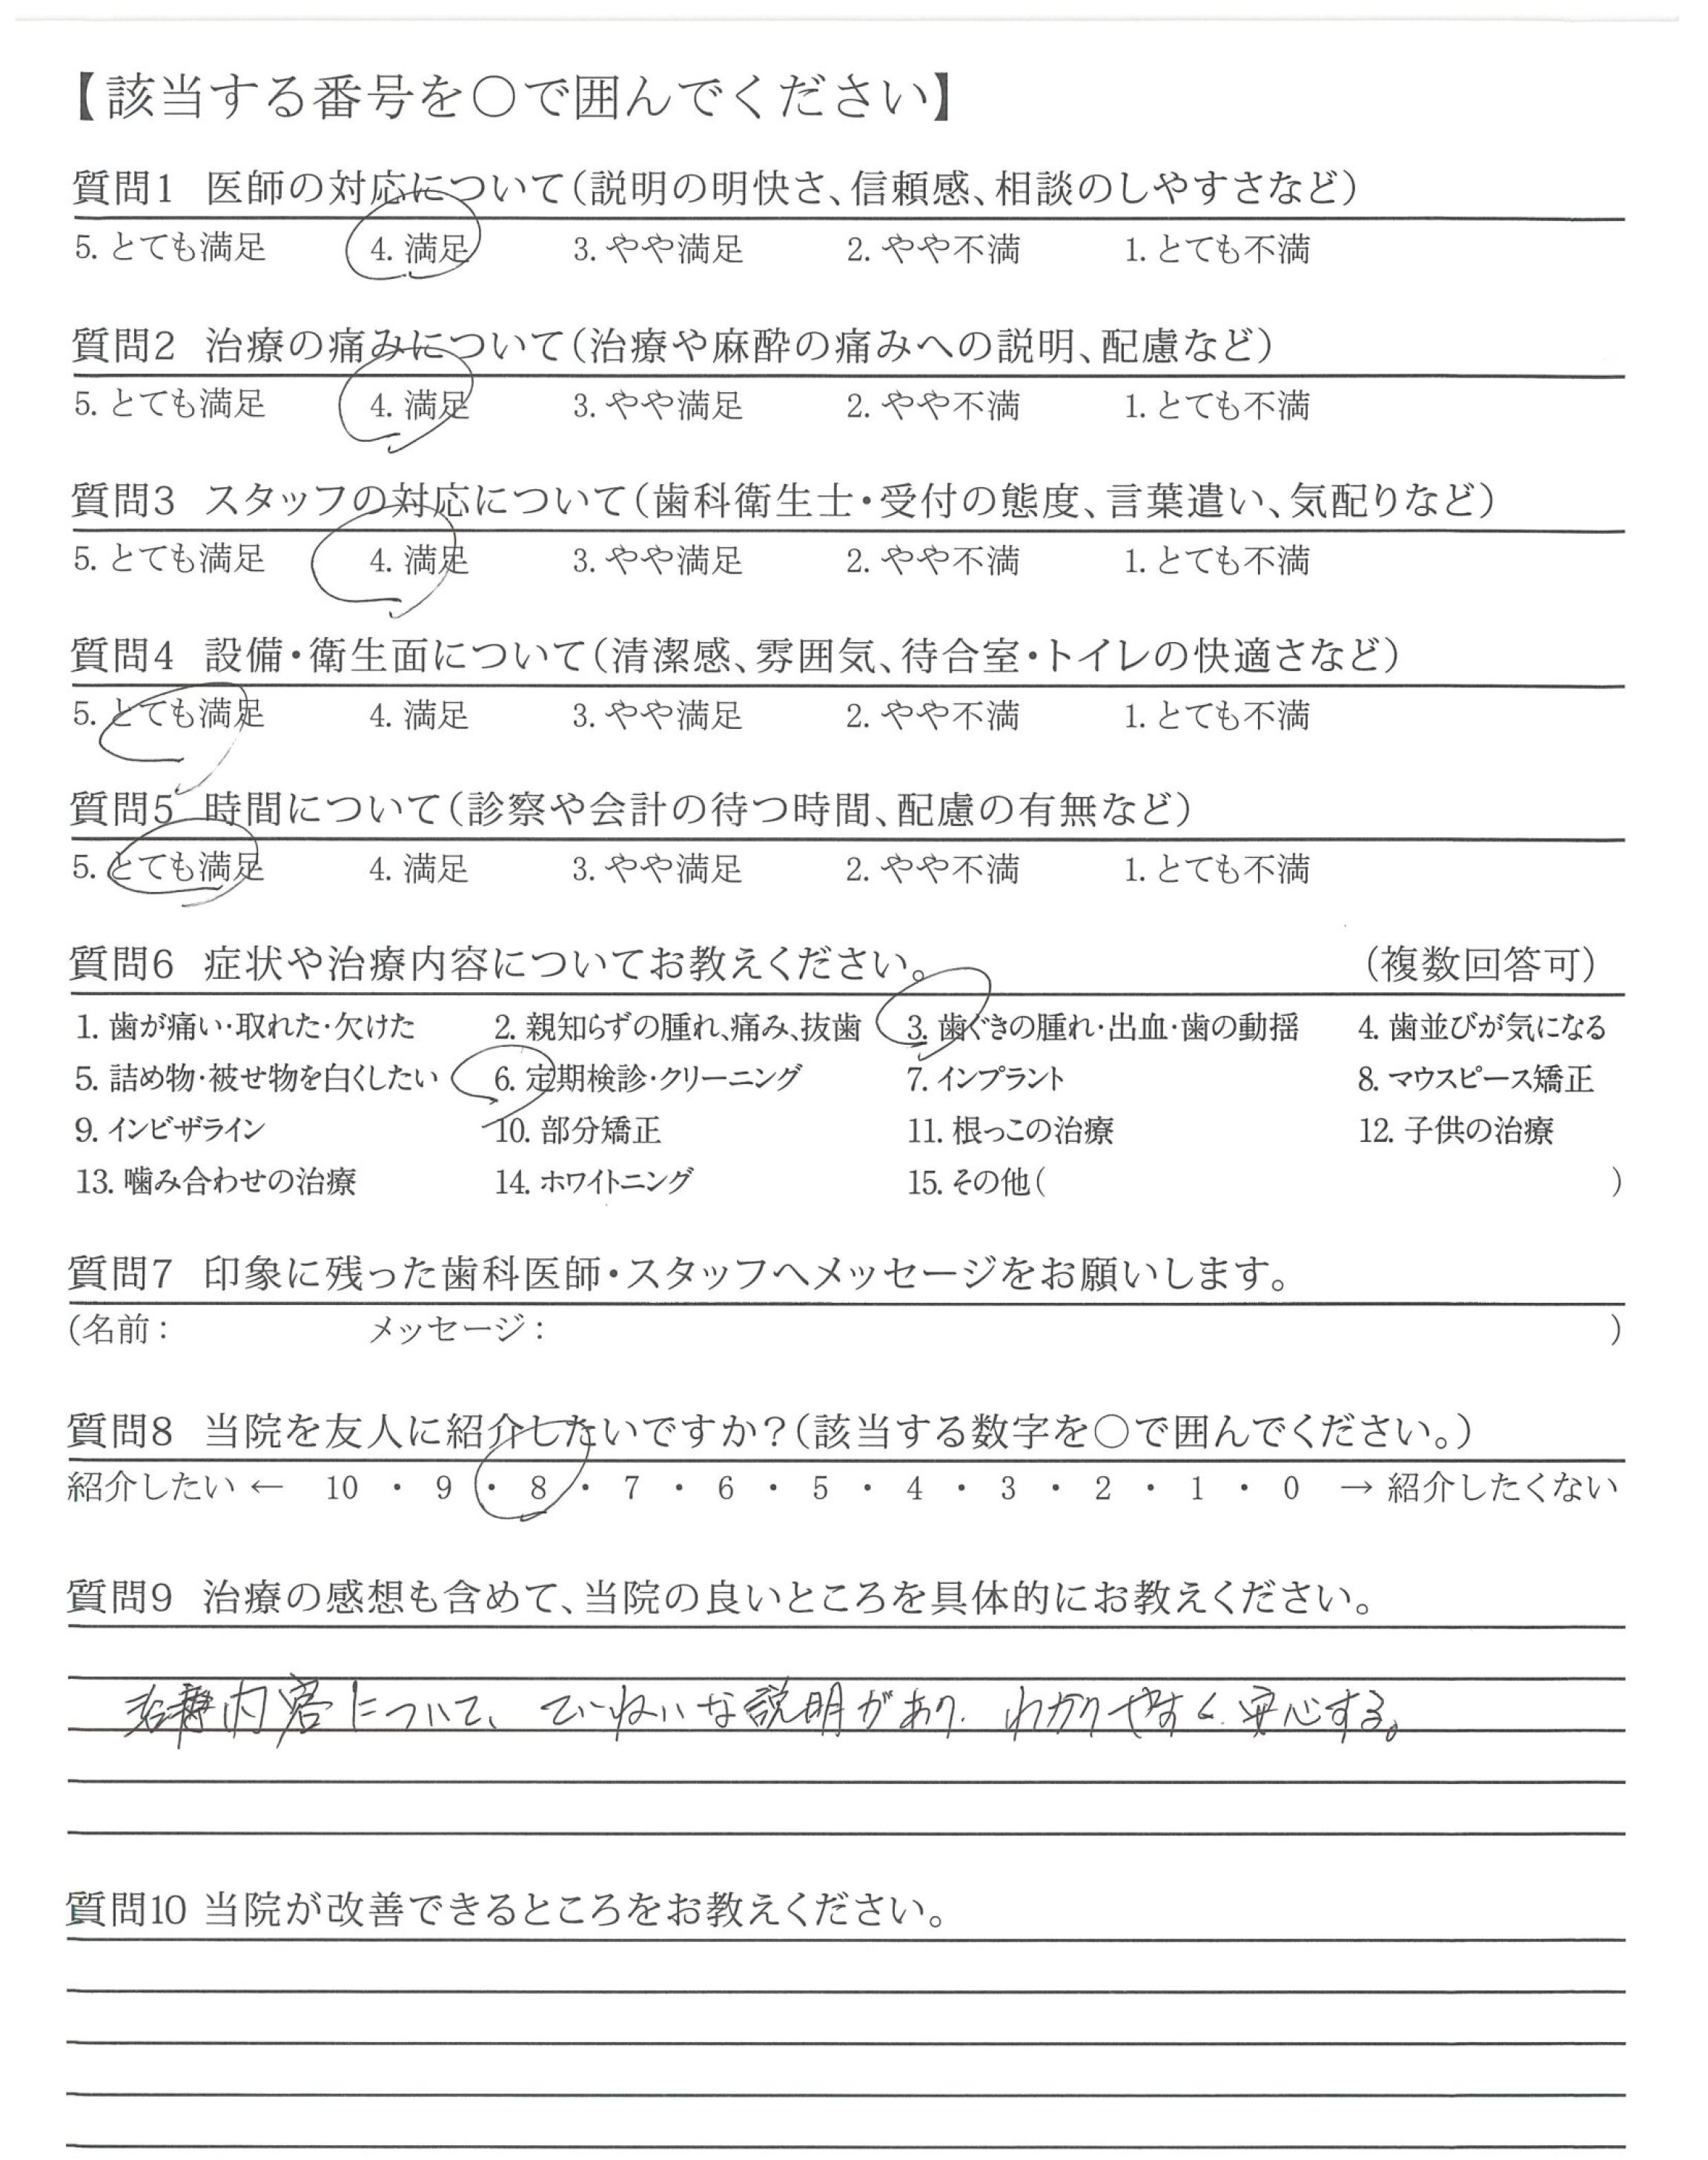 【該当する番号を〇で囲んでください】
質問1 医師の対応について(説明の明快さ、信頼感、相談のしやすさなど)
5. とても満足 4. 満足 3. やや満足 2. やや不満 1. とても不満
質問2 治療の痛みについて(治療や麻酔の痛みへの説明、配慮など)
5. とても満足 4. 満足 3. やや満足 2. やや不満 1. とても不満
質問3 スタッフの対応について(歯科衛生士・受付の態度、言葉遣い、気配りなど)
5. とても満足 4. 満足 3. やや満足 2. やや不満 1. とても不満
質問4 設備・衛生面について(清潔感、雰囲気、待合室・トイレの快適さなど)
5. とても満足 4. 満足 3. やや満足 2. やや不満 1. とても不満
質問5 時間について(診察や会計の待つ時間、配慮の有無など)
5. とても満足 4. 満足 3. やや満足 2. やや不満 1. とても不満
質問6 症状や治療内容についてお教えください。 (複数回答可)
1. 歯が痛い・取れた・欠けた 2. 親知らずの腫れ、痛み、抜歯 3. 歯ぐきの腫れ・出血・歯の動揺 4. 歯並びが気になる
5. 詰め物・被せ物を白くしたい 6. 定期検診・クリーニング 7. インプラント 8. マウスピース矯正
9. インビザライン 10. 部分矯正 11. 根っこの治療 12. 子供の治療
13. 噛み合わせの治療 14. ホワイトニング 15. その他( )
質問7 印象に残った歯科医師・スタッフへメッセージをお願いします。
(名前: メッセージ: )
質問8 当院を友人に紹介したいですか?(該当する数字を〇で囲んでください。)
紹介したい ← 10 ・ 9 ・ 8 ・ 7 ・ 6 ・ 5 ・ 4 ・ 3 ・ 2 ・ 1 ・ 0 → 紹介したくない
質問9 治療の感想も含めて、当院の良いところを具体的にお教えください。
治療内容について、ていねいな説明があり、わかりやすく、安心する。
質問10 当院が改善できるところをお教えください。